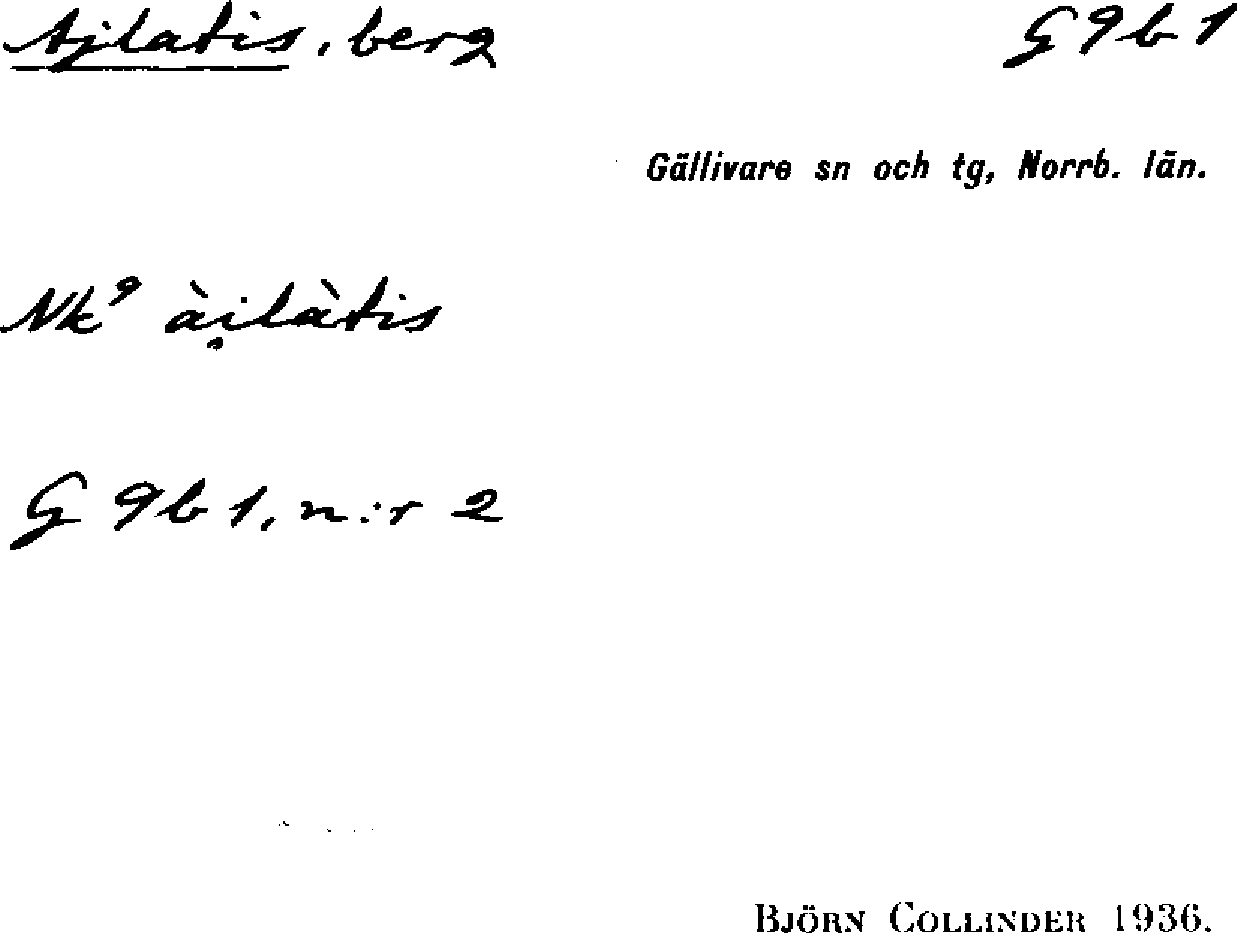 Ajlatis, berg
G 9 b 1
Gällivare sn och tg, Norrb. län.
Nk⁹ ài̮làtis
G 9 b 1, n:r 2
BJÖRN COLLINDER 1936.